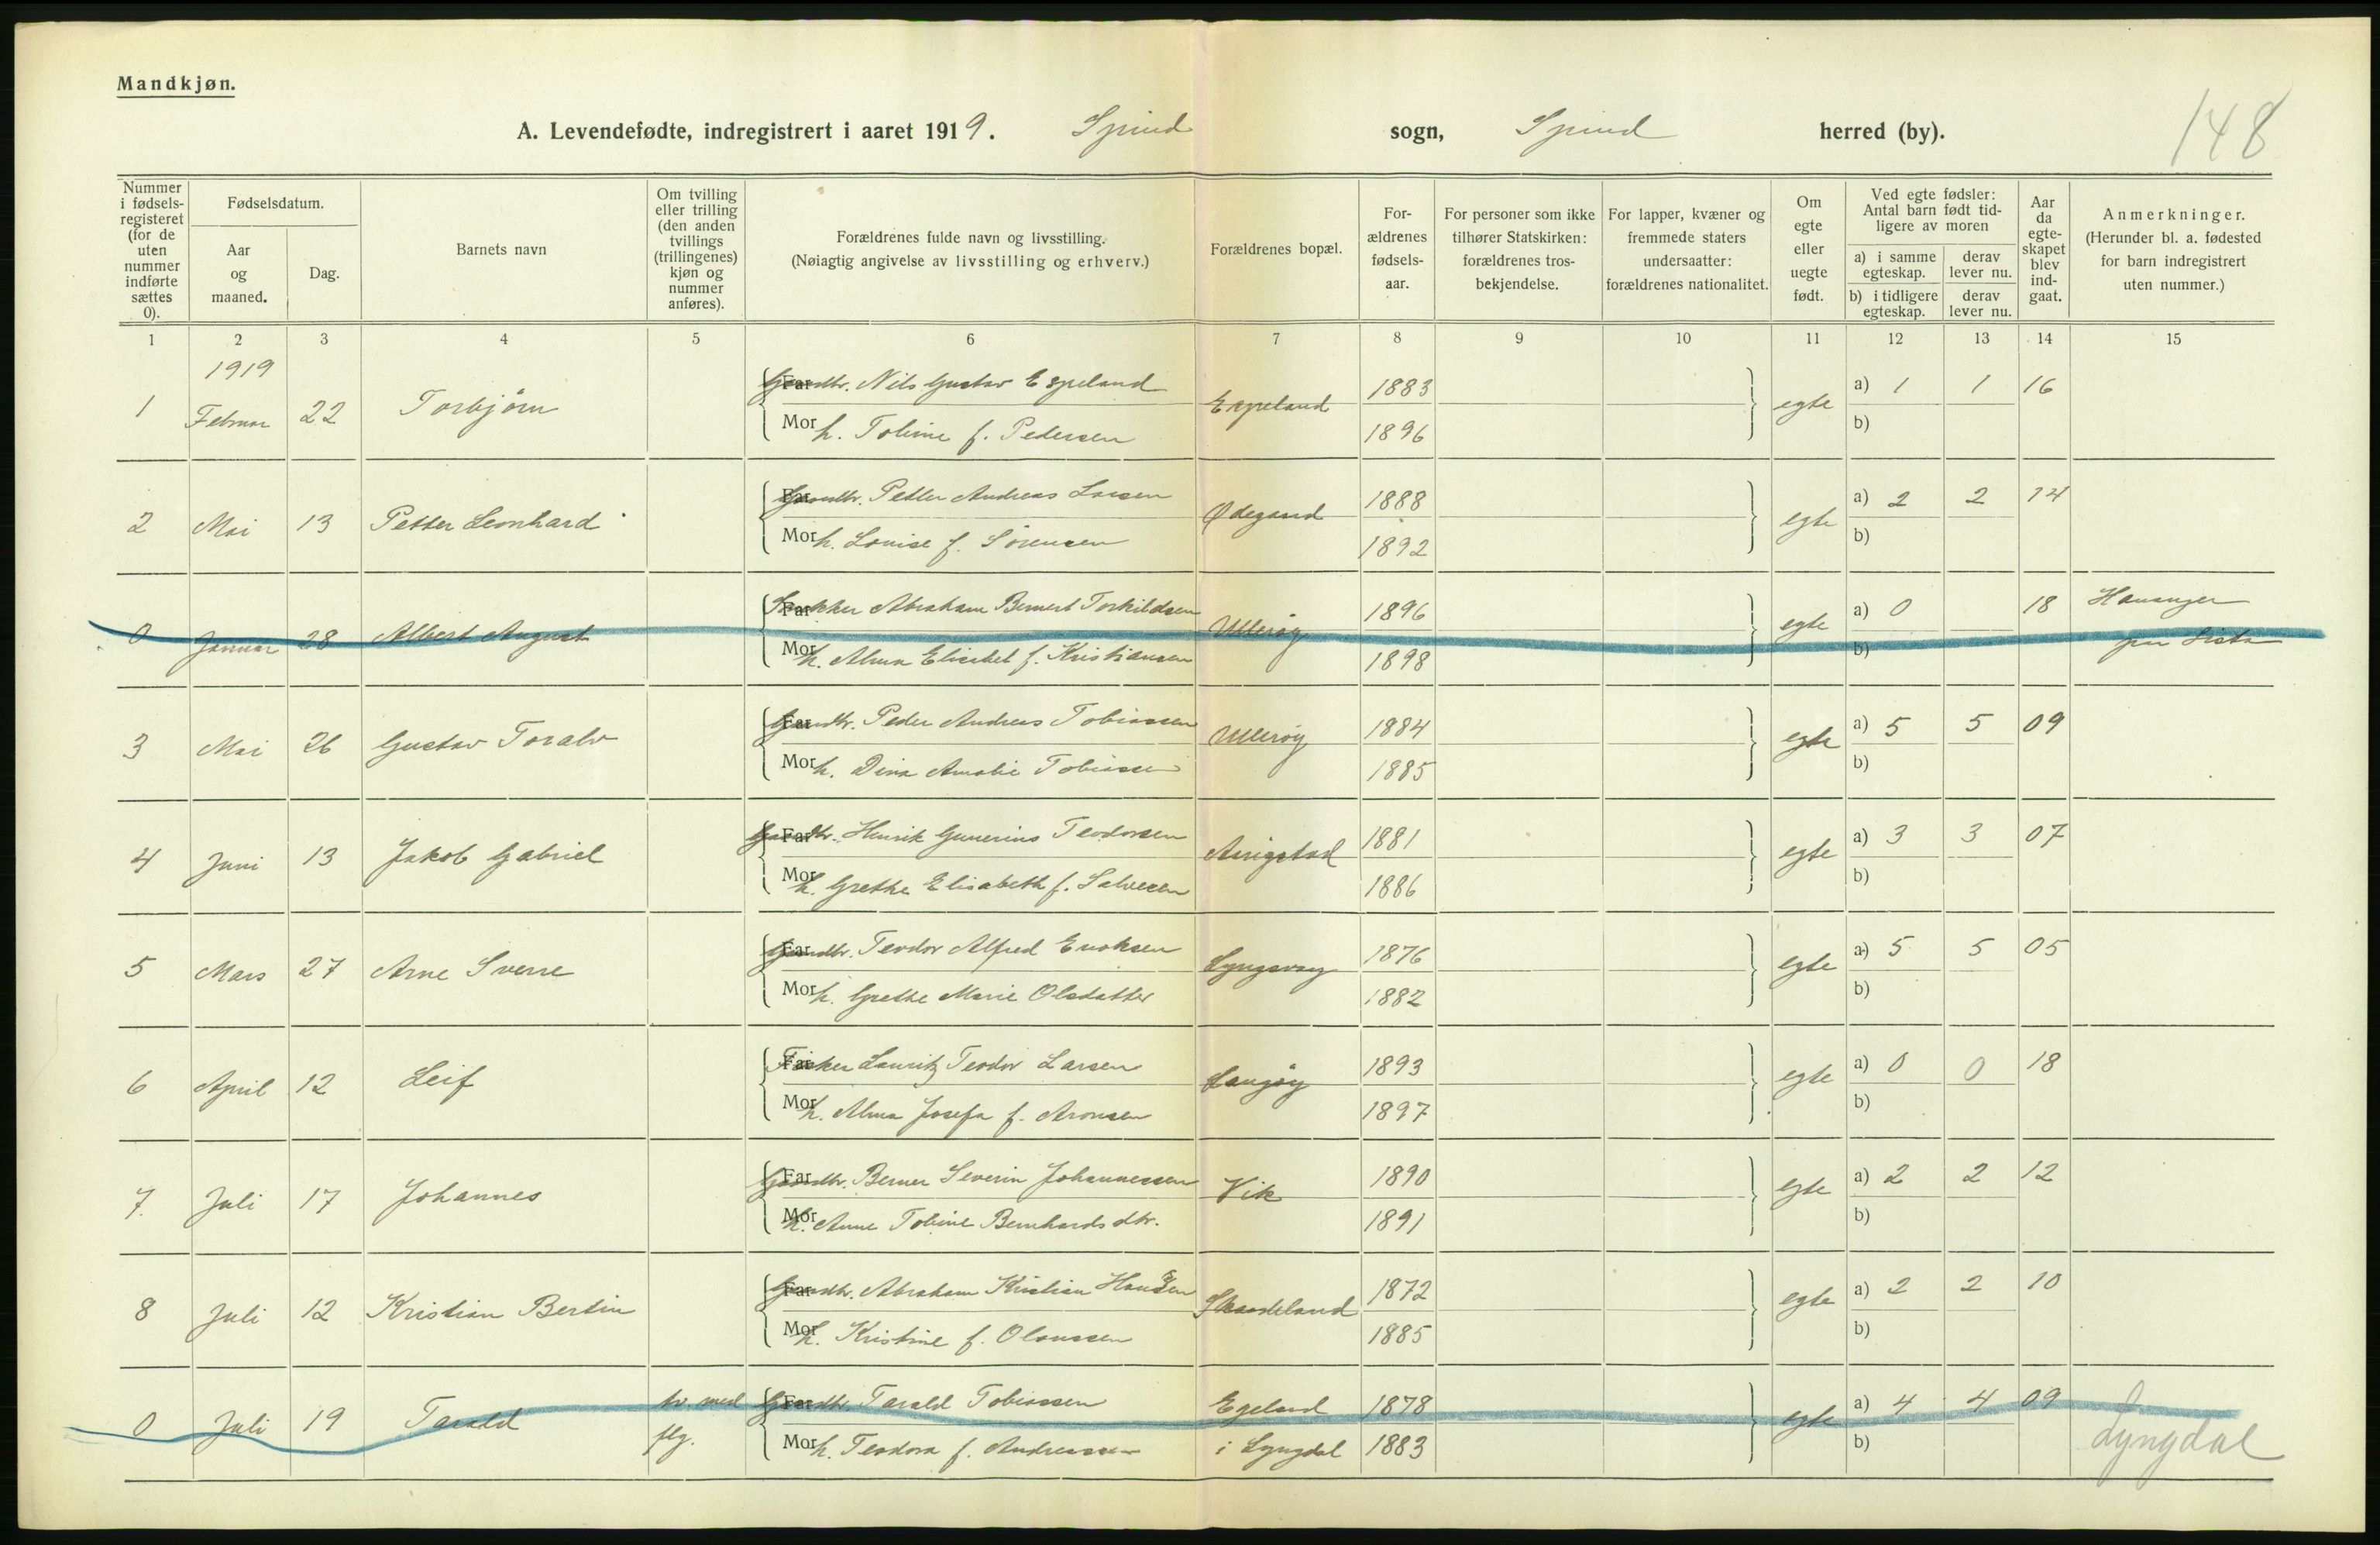 Mandkjøn.
148
A. Levendefødte, indregistrert i aaret 1919. Spind sogn, Spind herred (by).
Nummer i fødselsregisteret (for de uten nummer indførte sættes 0).
Fødselsdatum.
Aar og maaned.
Dag.
Barnets navn
Om tvilling eller trilling (den anden tvillings (trillingenes) kjøn og nummer anføres).
Forældrenes fulde navn og livsstilling.
(Nøiagtig angivelse av livsstilling og erhverv.)
Forældrenes bopæl.
For-ældrenes fødsels-aar.
For personer som ikke tilhører Statskirken: forældrenes tros-bekjendelse.
For lapper, kvæner og fremmede staters undersaatter: forældrenes nationalitet.
Om egte eller uegte født.
Ved egte fødsler: Antal barn født tid-ligere av moren
a) i samme egteskap. derav lever nu.
b) i tidligere egteskap. derav lever nu.
Aar da egte-skapet blev ind-gaat.
Anmerkninger.
(Herunder bl. a. fødested for barn indregistrert uten nummer.)
1 2 3 4 5 6 7 8 9 10 11 12 13 14 15
1919
1 Februar 22 Torbjørn Far Gaardbr. Nils Gustav Espeland Espeland 1883 egte a) 1 1 16
Mor h. Toline f. Pedersen 1896 b)
2 Mai 13 Petter Leonhard Far Gaardbr. Petter Andreas Larsen Ødegaard 1888 egte a) 2 2 14
Mor h. Louise f. Sørensen 1892 b)
0 Januar 28 Albert August Far Abraham Bernert Torkildsen Ullerøy 1896 egte a) 0 18 Hananger
Mor h. Alma Elisabet f. Kristiansen 1898 b) paa Lista
3 Mai 26 Gustav Toralv Far Gaardbr. Peder Andreas Tobiassen Ullerøy 1884 egte a) 5 5 09
Mor h. Dina Amalie Tobiassen 1885 b)
4 Juni 13 Jakob Gabriel Far Gaardbr. Henrik Gunerius Teodorsen 1881 egte a) 3 3 07
Mor h. Grethe Elisabeth f. Salvesen 1886 b)
5 Mars 27 Arne Sverre Far Gaardbr. Teodor Alfred Enoksen Lyngsvaag 1876 egte a) 5 5 05
Mor h. Grethe Marie Olsdatter 1882 b)
6 April 12 Leif Far Fisker Lauritz Teodor Larsen Langøy 1893 egte a) 0 0 18
Mor h. Alma Josefa f. Aronsen 1897 b)
7. Juli 17 Johannes Far Gaardbr. Berner Severin Johannessen Vik 1890 egte a) 2 2 12
Mor h. Anne Toline Bernhardsdtr. 1891 b)
8 Juli 12 Kristian Bertin Far Gaardbr. Abraham Kristian Hansen Skaadeland 1872 egte a) 2 2 10
Mor h. Kristine f. Olaussen 1885 b)
0 Juli 19 Tarald tv. med Far Gaardbr. Tarald Tobiassen Egeland 1878 egte a) 4 4 09
flg. Mor h. Teodora f. Andreassen i Lyngdal 1883 b) Lyngdal